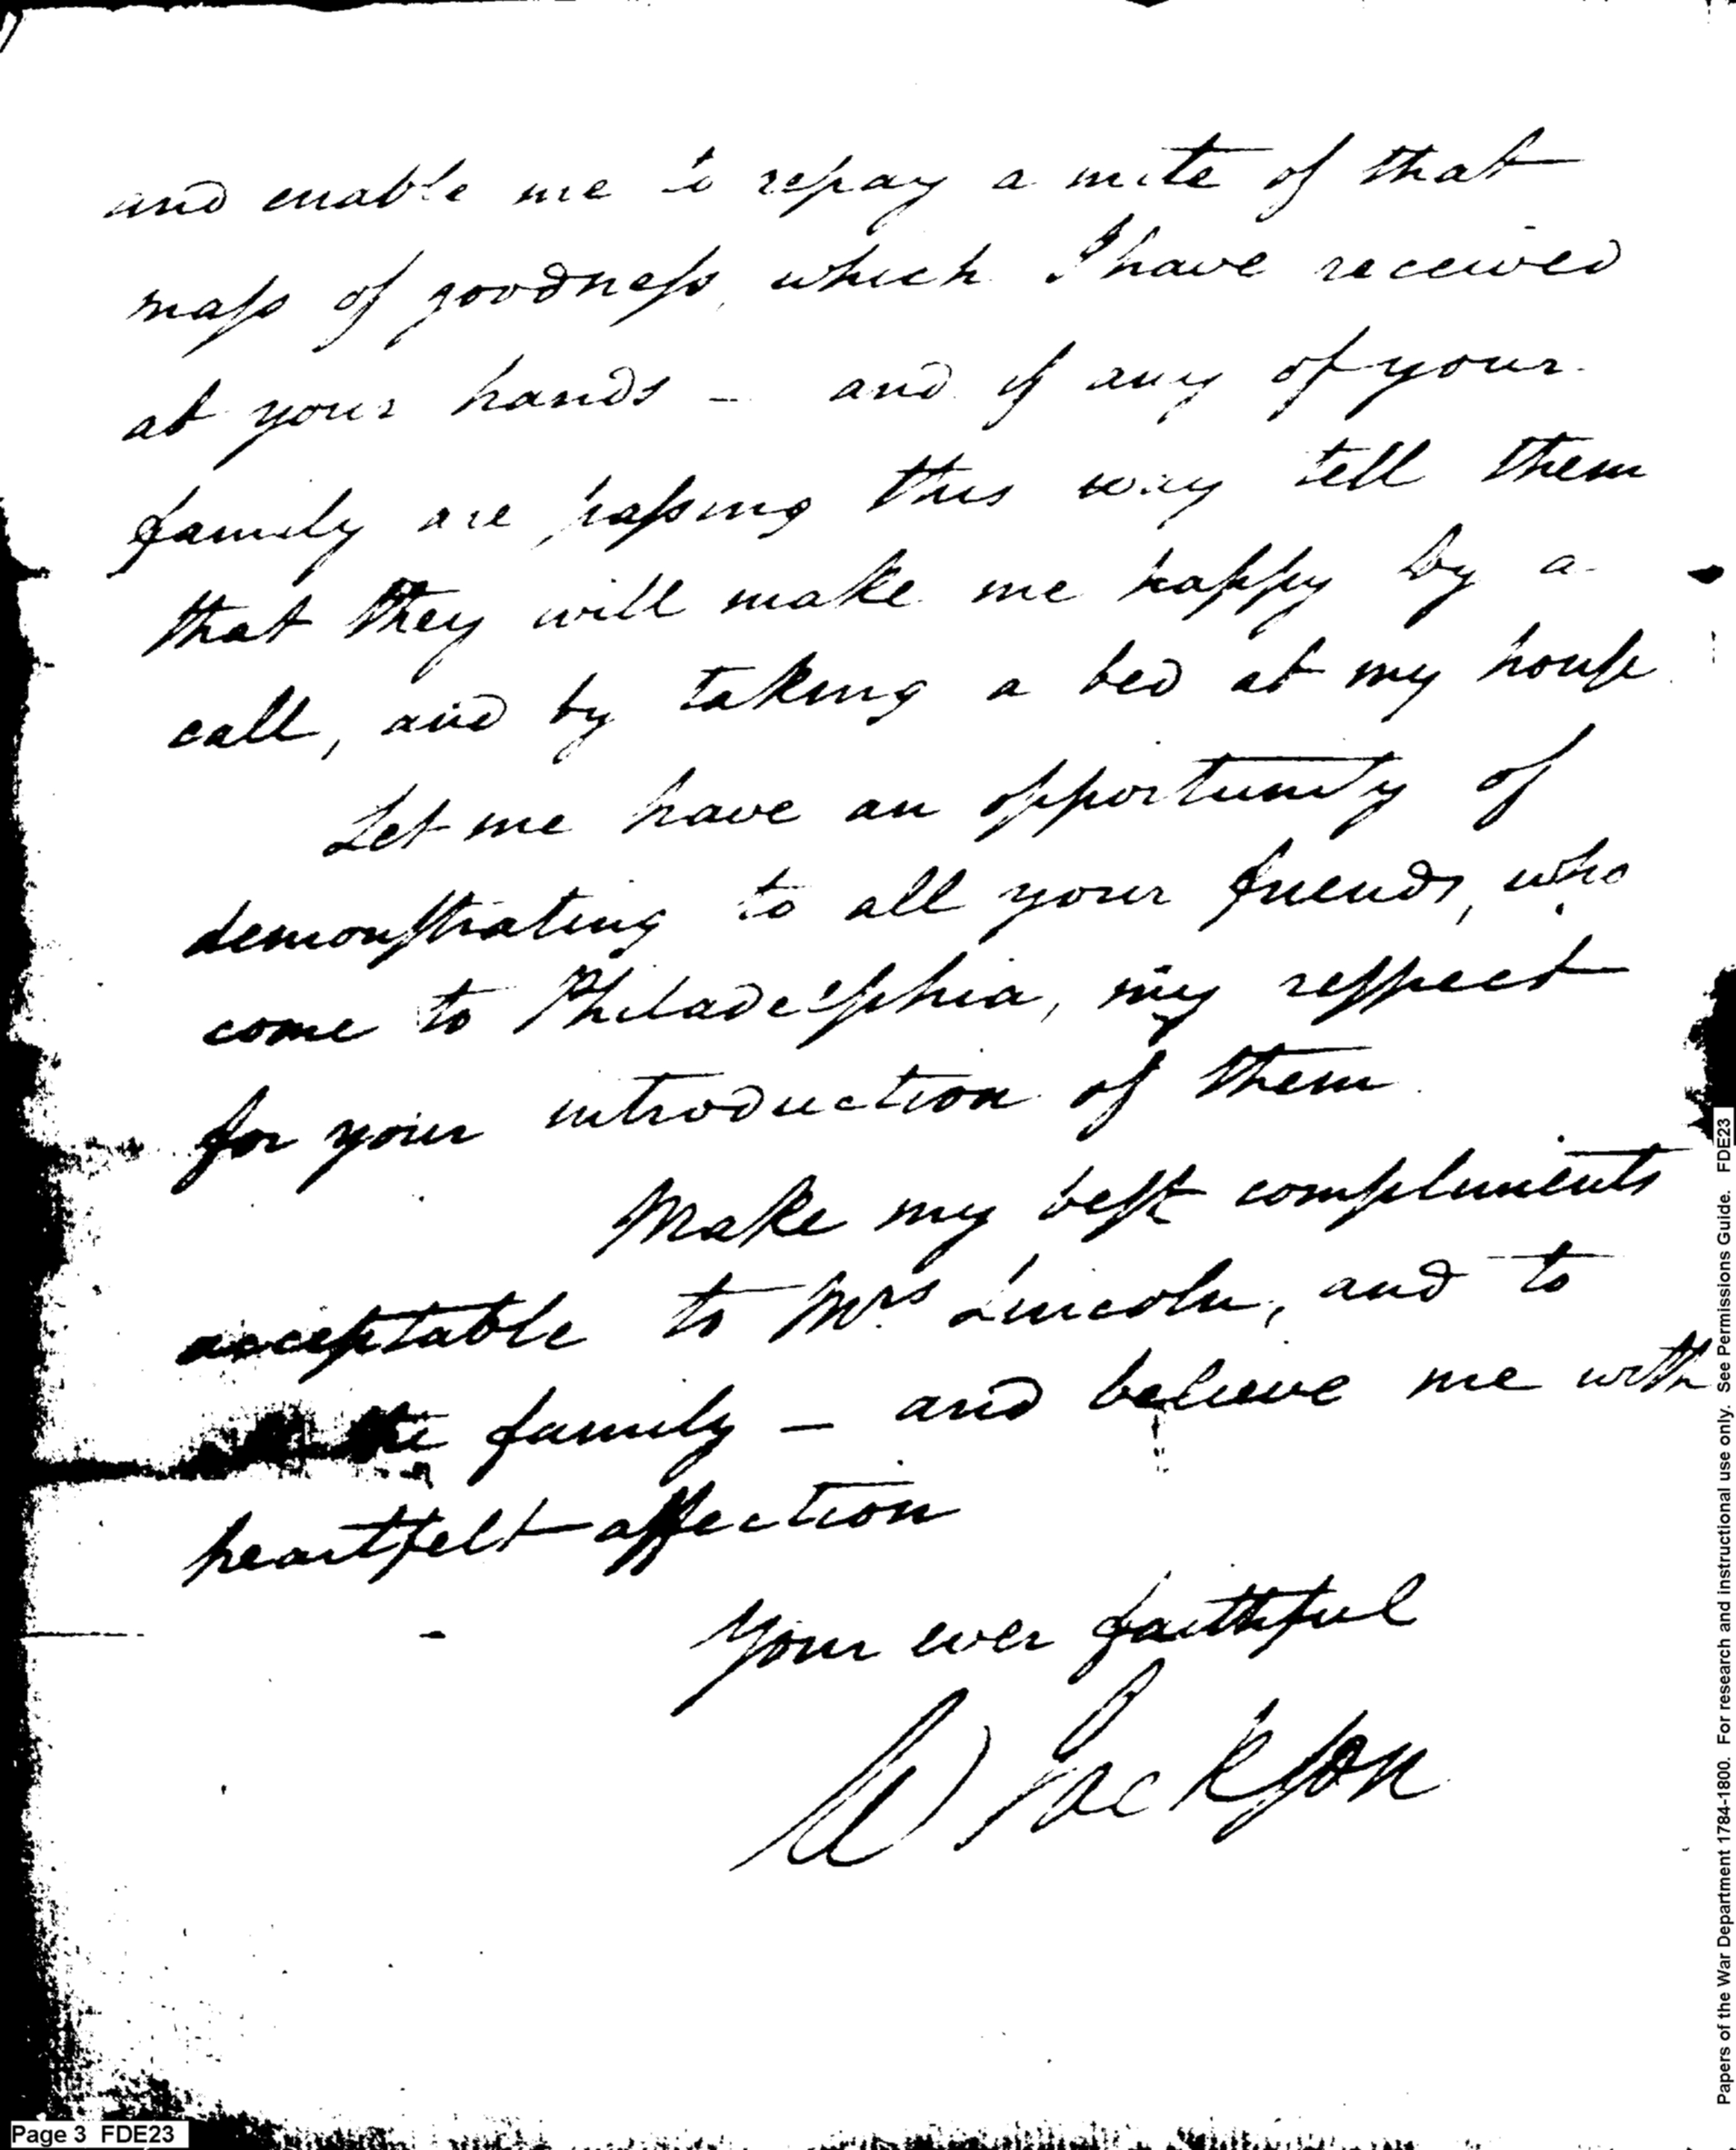 and enable me to repay a mite of that
mass of goodness, which I have received
at your hands – and if any of your
family are passing this way tell them
that they will make me happy by a
call, and by taking a bed at my house
Let me have an opportunity of
demonstrating to all your friends, who
come to Philadelphia, my respect
for your introduction of them
Make my best compliments
acceptable to Mrs Lincoln, and to
the family – and believe me with
heartfelt affection
Your ever faithful
W Jackson
Page 3 FDE23
Papers of the War Department 1784-1800. For research and instructional use only. See Permissions Guide. FDE23